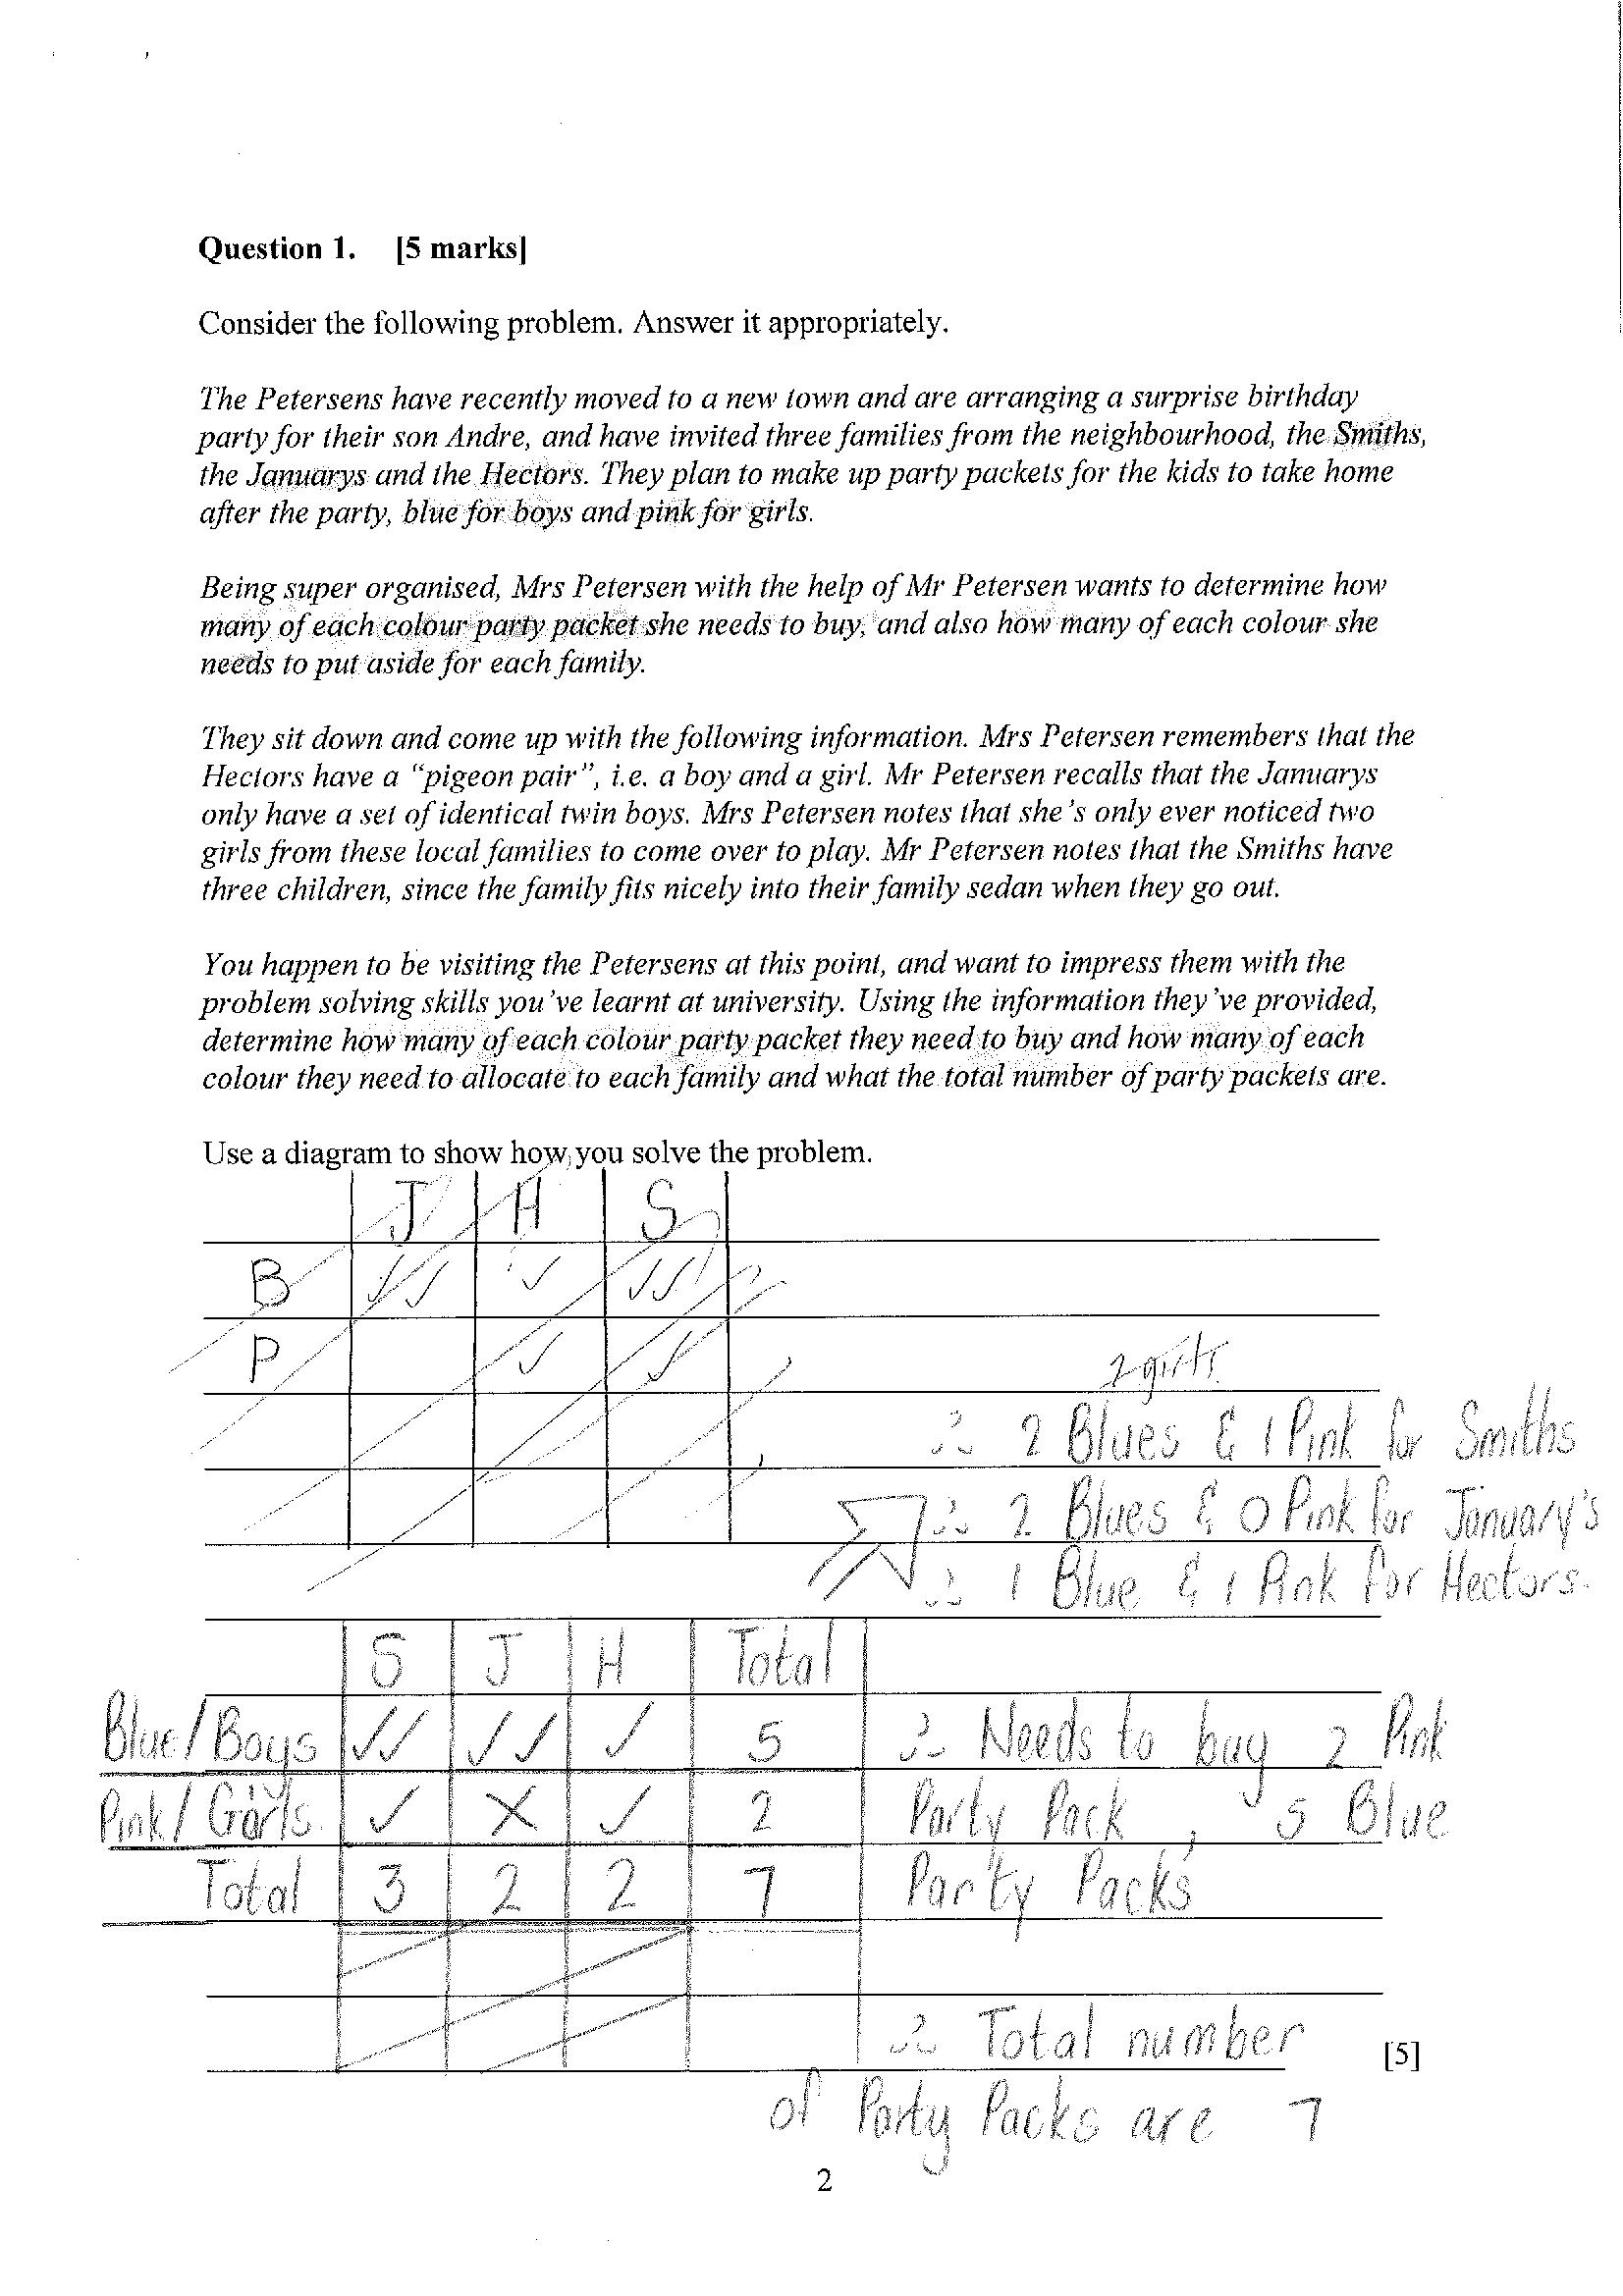 Question 1. [5 marks]
Consider the following problem. Answer it appropriately.
The Petersens have recently moved to a new town and are arranging a surprise birthday
party for their son Andre, and have invited three families from the neighbourhood, the Smiths,
the Januarys and the Hectors. They plan to make up party packets for the kids to take home
after the party, blue for boys and pink for girls.
Being super organised, Mrs Petersen with the help of Mr Petersen wants to determine how
many of each colour party packet she needs to buy, and also how many of each colour she
needs to put aside for each family.
They sit down and come up with the following information. Mrs Petersen remembers that the
Hectors have a “pigeon pair”, i.e. a boy and a girl. Mr Petersen recalls that the Januarys
only have a set of identical twin boys. Mrs Petersen notes that she’s only ever noticed two
girls from these local families to come over to play. Mr Petersen notes that the Smiths have
three children, since the family fits nicely into their family sedan when they go out.
You happen to be visiting the Petersens at this point, and want to impress them with the
problem solving skills you’ve learnt at university. Using the information they’ve provided,
determine how many of each colour party packet they need to buy and how many of each
colour they need to allocate to each family and what the total number of party packets are.
Use a diagram to show how you solve the problem.
J H S
B ✓✓ ✓ ✓✓
P ✓ ✓
2 girls
∴ 2 Blues & 1 Pink for Smiths
∴ 2 Blues & 0 Pink for January's
∴ 1 Blue & 1 Pink for Hectors.
S J H Total
Blue/Boys ✓✓ ✓✓ ✓ 5 ∴ Needs to buy 2 Pink
Pink/Girls ✓ X ✓ 2 Party Pack, 5 Blue
Total 3 2 2 7 Party Packs
∴ Total number
[5]
of Party Packs are 7
2